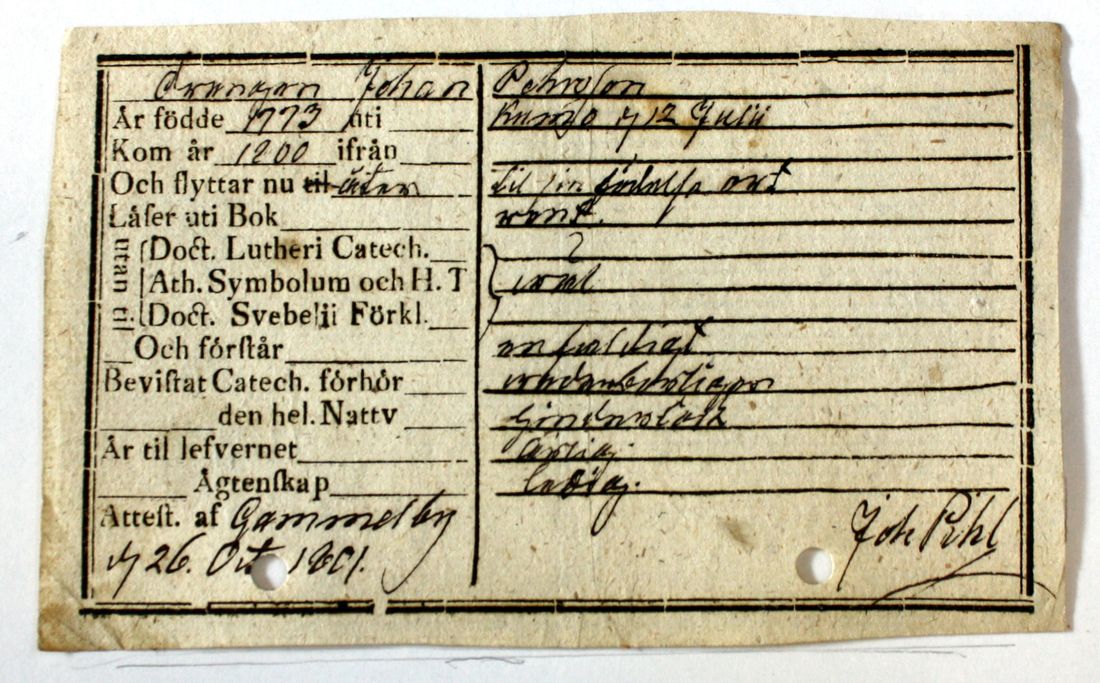 Drengen Johan Pehrsson
År födde 1773 uti Kumbo d 12 Julii
Kom år 1800 ifrån
Och flyttar nu til åter til sin födelse ort
Låser uti Bok rent.
utan til
Doct. Lutheri Catech.
Ath. Symbolum och H. T wal
Doct. Svebelii Förkl.
Och förstår enfaldigt
Bevistat Catech. förhör
den hel. Nattv
År til lefvernet ärlig.
Ägtenskap ledig.
Attest. af Gammelby
d 26. Oct. 1801. Joh Pihl